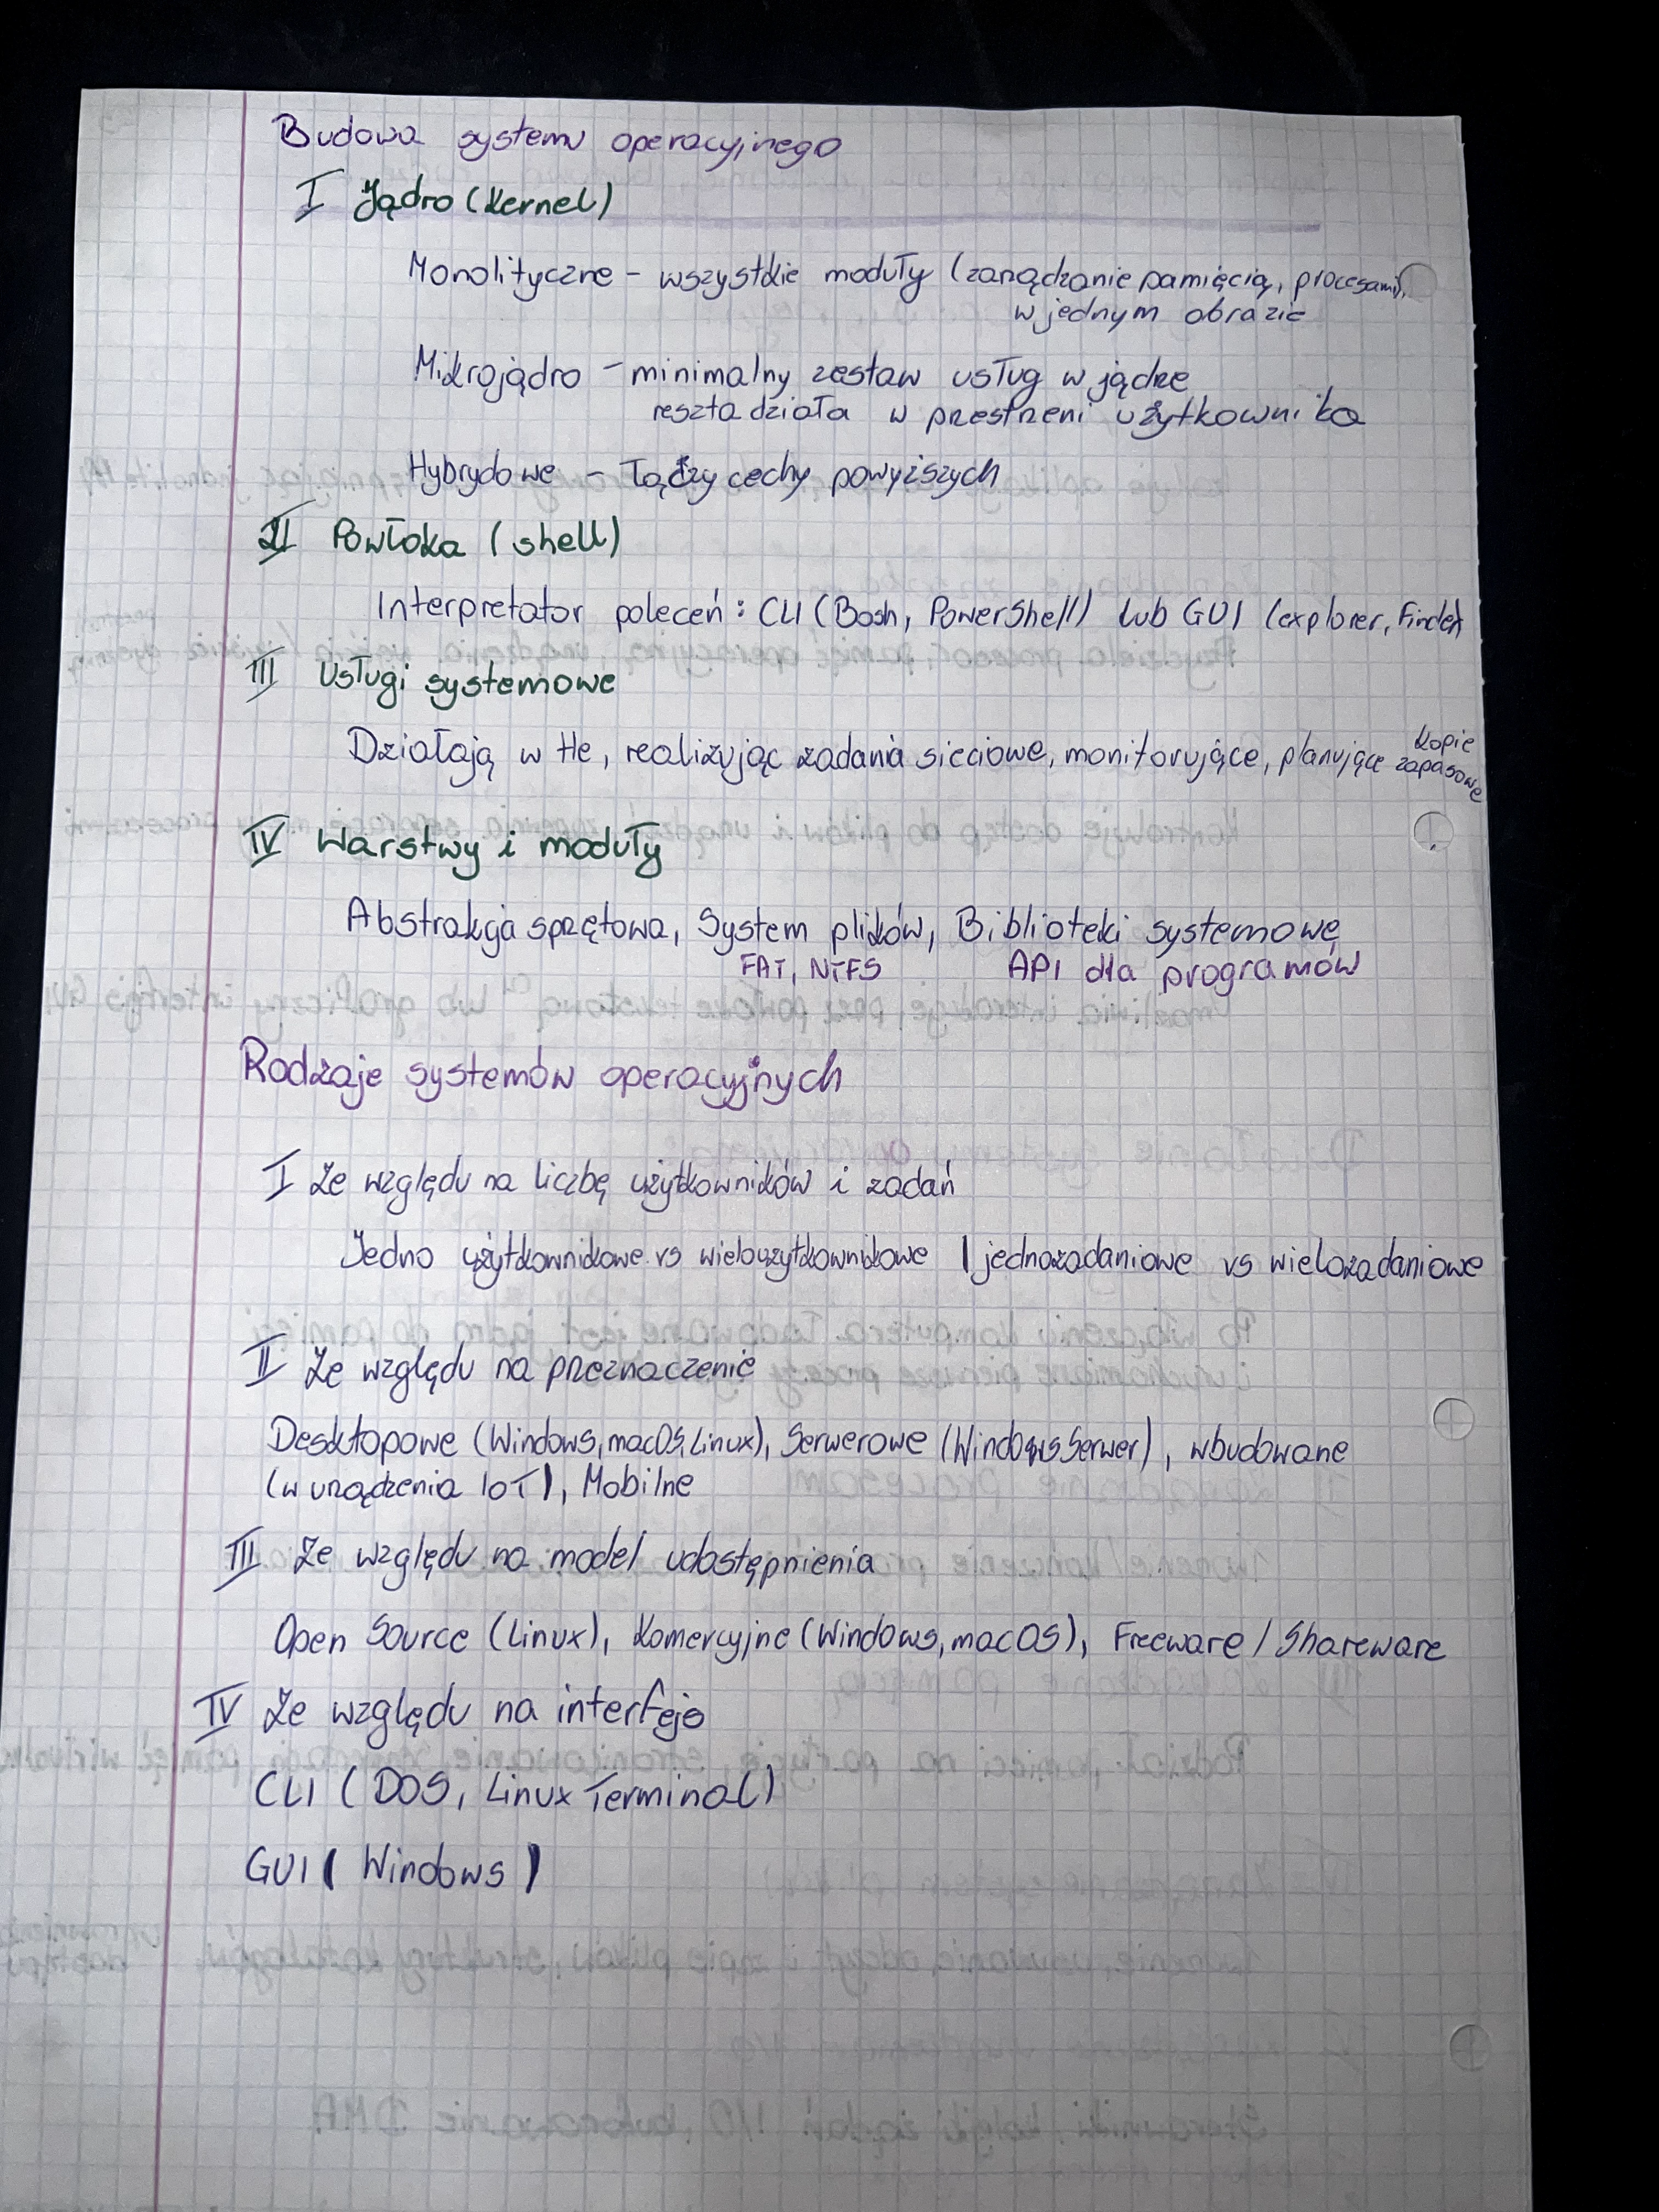 Budowa systemu operacyjnego
I Jądro (Kernel)
Monolityczne - wszystkie moduły (zarządzanie pamięcią, procesami),
w jednym obrazie
Mikrojądro - minimalny zestaw usług w jądrze
reszta działa w przestrzeni użytkownika
Hybrydowe - łączy cechy powyższych
II Powłoka (shell)
Interpretator poleceń: CLI (Bash, PowerShell) lub GUI (explorer, Finder)
III Usługi systemowe
Działają w tle, realizując zadania sieciowe, monitorujące, planujące kopie zapasowe
IV Warstwy i moduły
Abstrakcja sprzętowa, System plików, Biblioteki systemowe
FAT, NTFS API dla programów
Rodzaje systemów operacyjnych
I Ze względu na liczbę użytkowników i zadań
Jedno użytkownikowe vs wieloużytkownikowe | jednozadaniowe vs wielozadaniowe
II Ze względu na przeznaczenie
Desktopowe (Windows, macOS, Linux), Serwerowe (Windows Serwer), wbudowane
(w urządzenia IoT), Mobilne
III Ze względu na model udostępnienia
Open Source (Linux), Komercyjne (Windows, macOS), Freeware / Shareware
IV Ze względu na interfejs
CLI (DOS, Linux Terminal)
GUI (Windows)